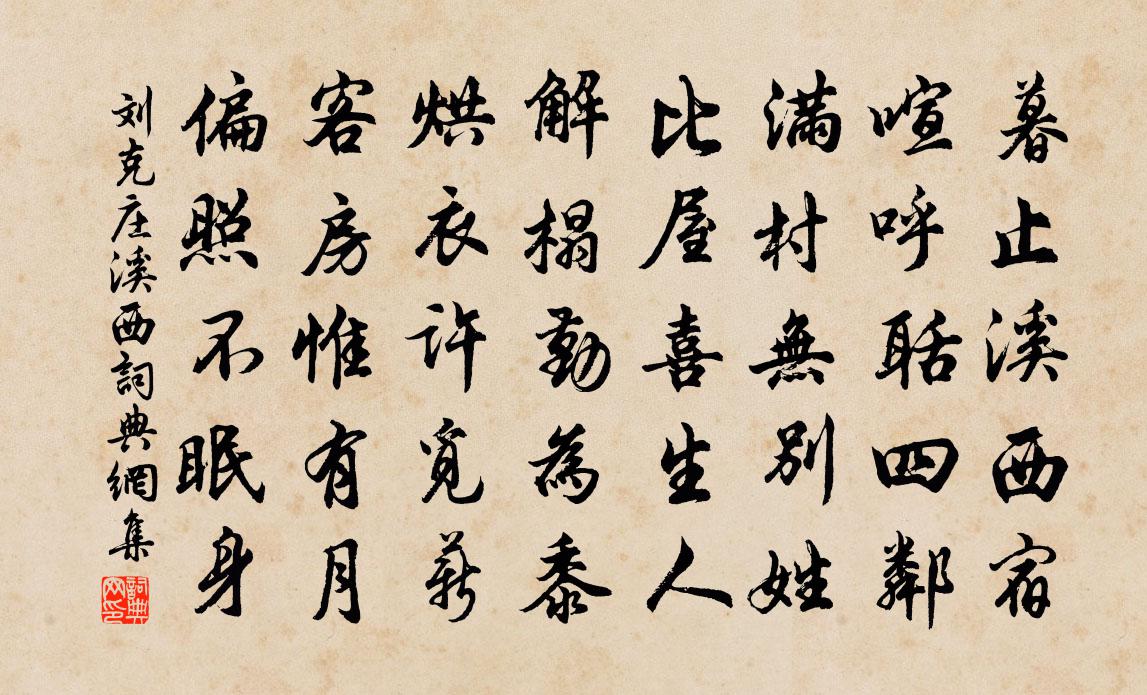 暮止溪西宿
喧呼聒四鄰
滿村無別姓
比屋喜生人
解榻勤為黍
烘衣許覓薪
客房惟有月
偏照不眠身
刘克庄溪西詞典網集
詞典网印